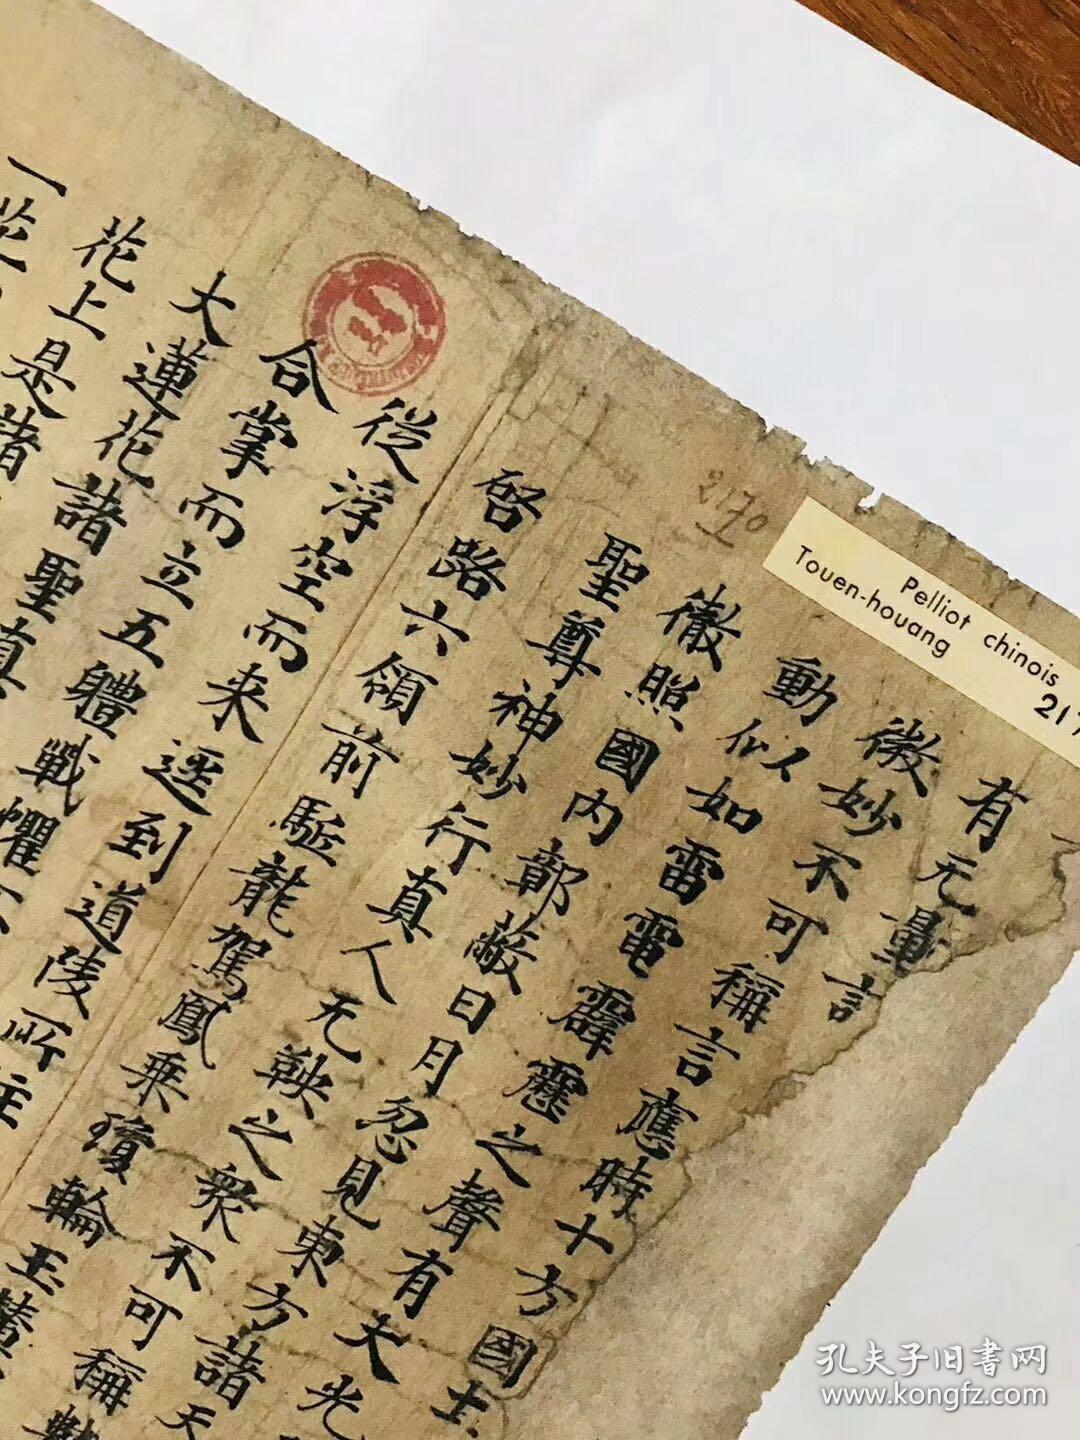 2170
Pelliot chinois
Touen-houang
217
有无量言
微妙不可稱言應時十方國土
動似如雷電霹靂之聲有大光
徹照國内鄣蔽日月忽見東方諸天
聖尊神妙行真人无鞅之衆不可稱數
啓路六領前駈龍駕鳳乘瓊輪玉輦
從浮空而来逕到道陵所住
合掌而立五體戰懼
大蓮花諸聖真
花上是諸
一花
孔夫子旧书网
www.kongfz.com